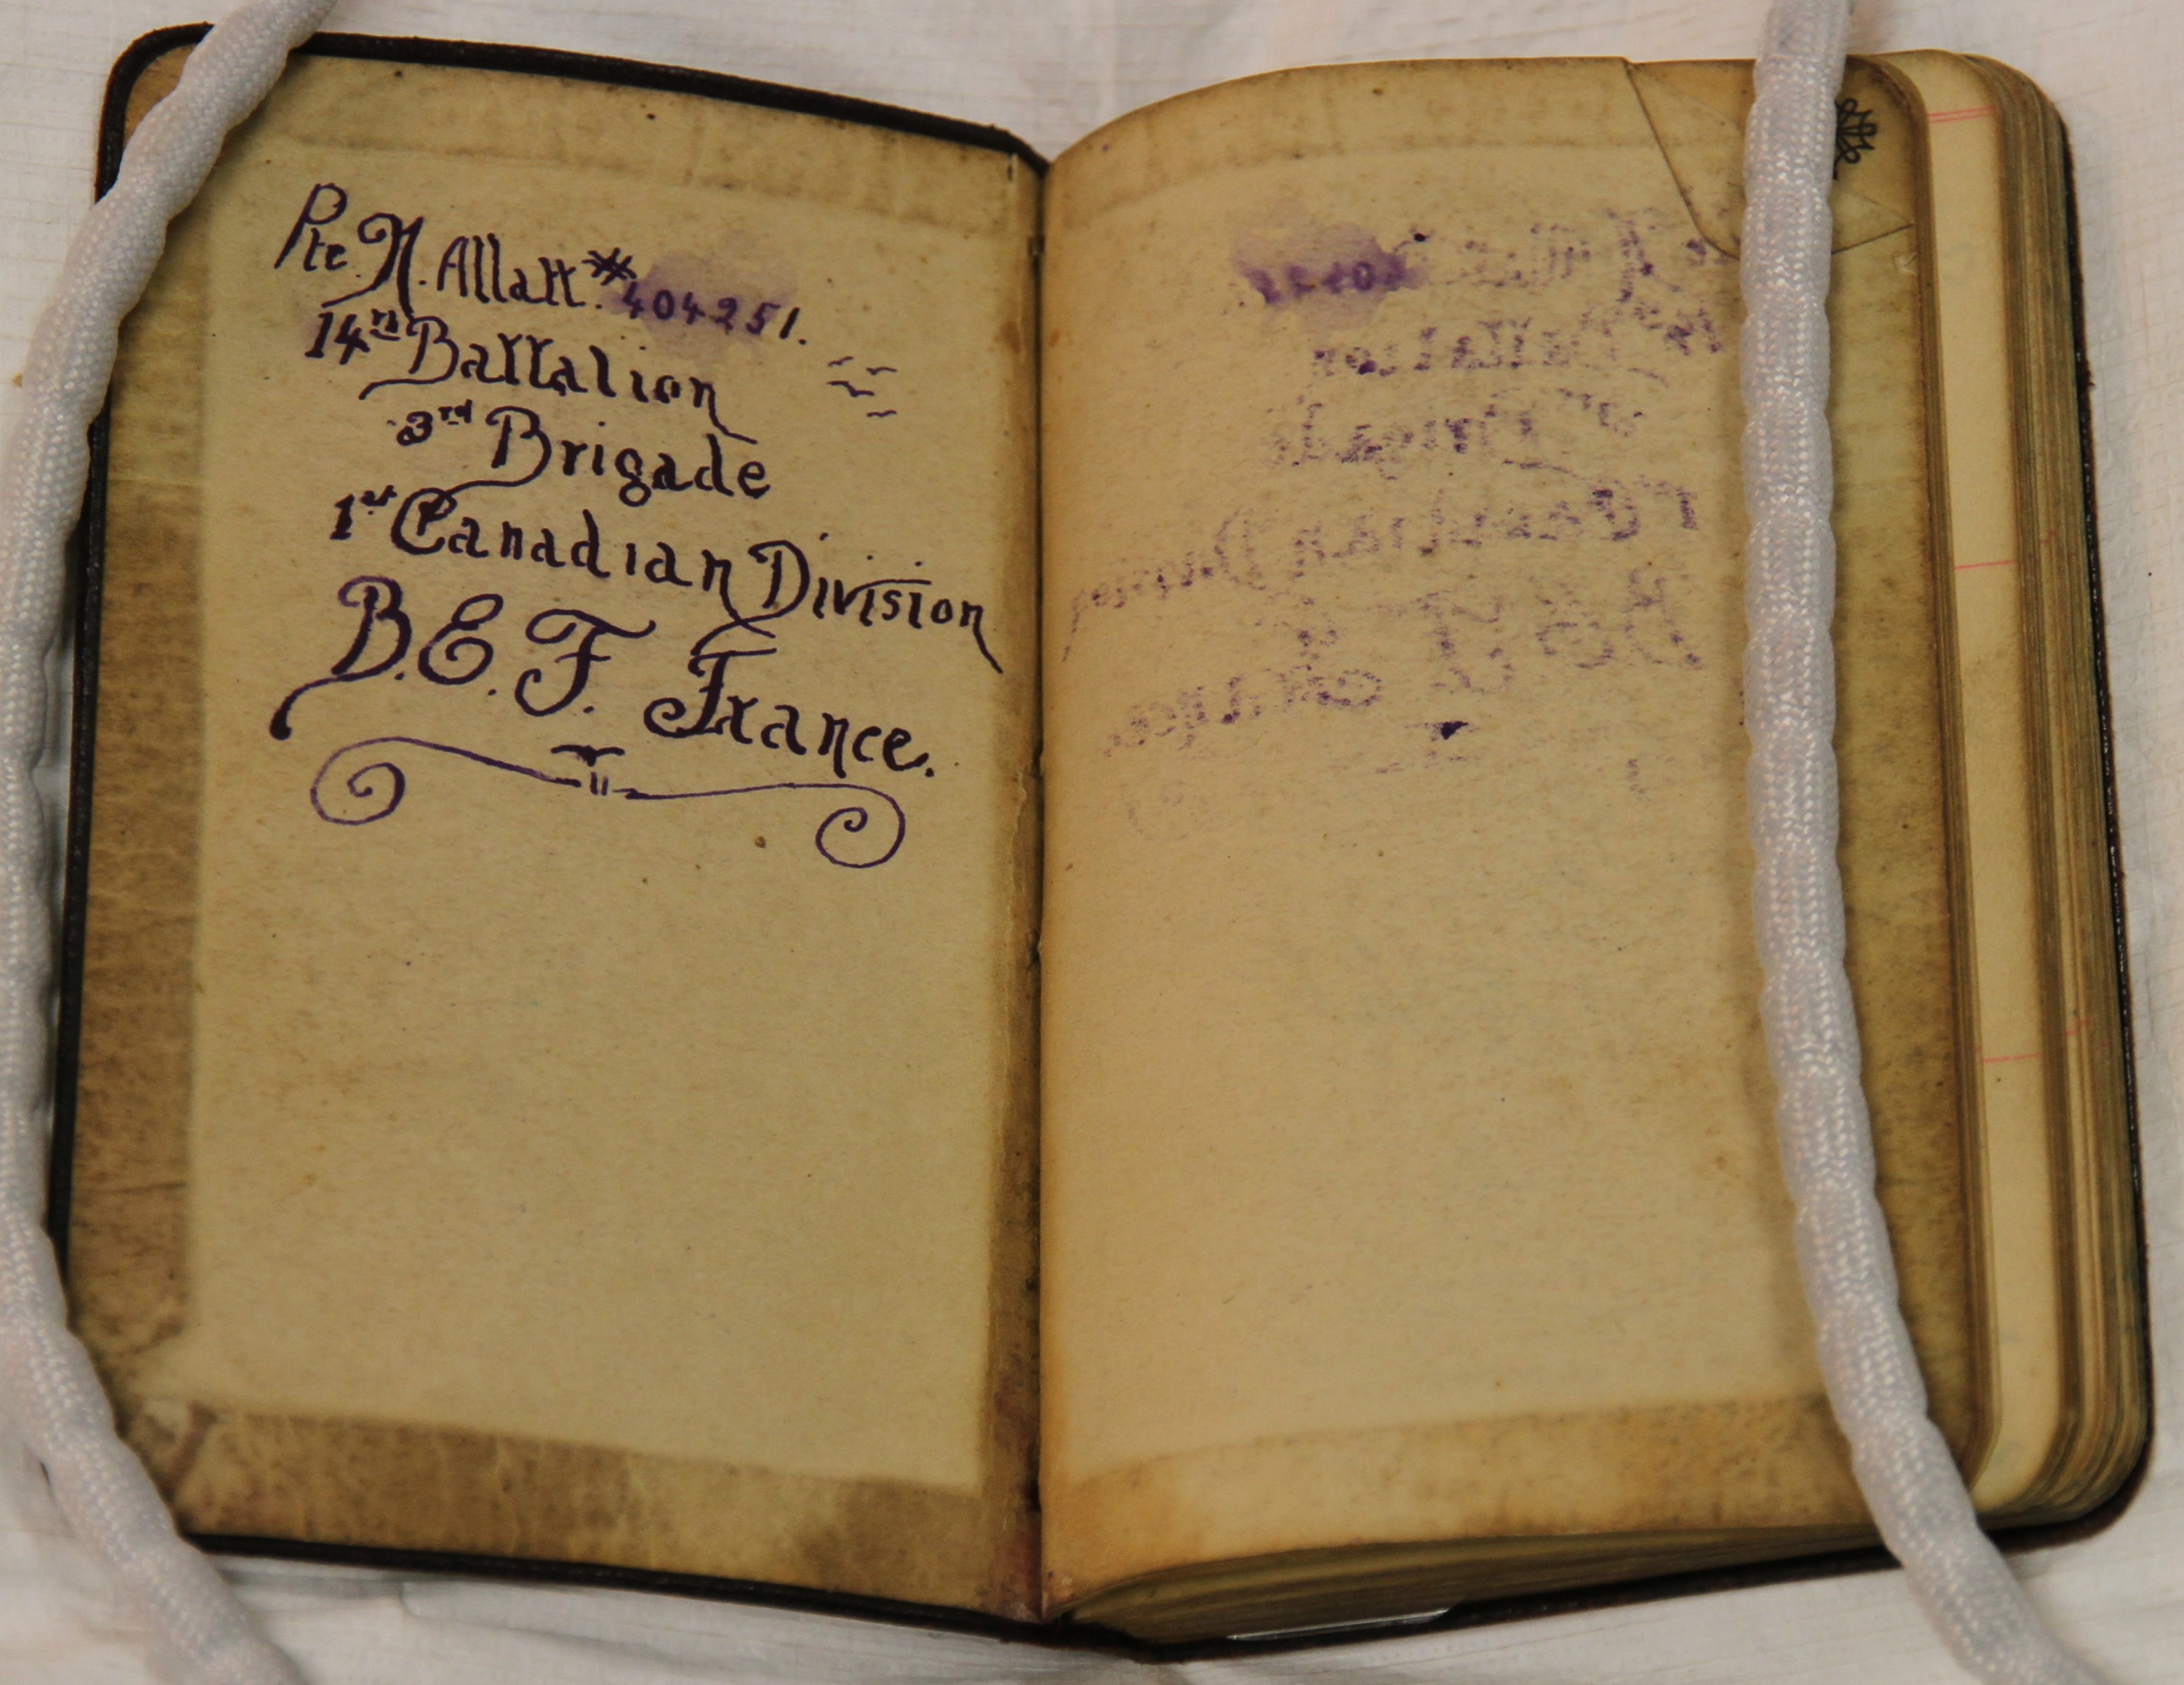 Pte. N. Allatt. # 404251.
14th Battalion
3rd Brigade
1st Canadian Division
B.E.F. France.